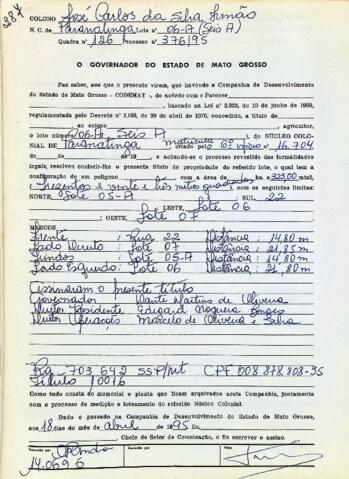 287
COLONO José Carlos da Silva Simão
N. C. de Paranatinga Lote nº 06-A (Seis A)
Quadra nº 126 Processo nº 376/95
O GOVERNADOR DO ESTADO DE MATO GROSSO
Faz saber, aos que o presente virem, que havendo a Companhia de Desenvolvimento
do Estado de Mato Grosso - CODEMAT -, de acordo com o Parecer
, baseado na Lei nº 2.925, de 10 de junho de 1969,
regulamentada pelo Decreto nº 1.138, de 30 de abril de 1970, concedido, a título de
ao colono , agricultor,
o lote número 06-A, Seis A do NÚCLEO COLO-
NIAL DE Paranatinga matrícula 6º ofício nº 16.704
de 19 e achando-se o processo revestido das formalidades
legais, resolveu conferir-lhe o presente título de propriedade do referido lote, o qual tem a
configuração de um polígono com a área de há 323,00 mts²
(Trezentos e vinte e três mitros quadrados), com os seguintes limites:
NORTE, Lote 05-A ; SUL, 22
; LESTE, Lote 06
; OESTE, Lote 07
MARCOS
Frente : Rua 22 Distância : 14,80 m
Lado Direito : Lote 07 Distância : 21,85 m
Fundos : Lote 05-A Distância : 14,80 m
Lado Esquerdo : Lote 06 Distância : 21,80 m
Assinaram o presente título
Governador Dante Martins de Oliveira
Diretor Presidente Edgard Nogueira Borges
Diretor Operações Marcelo de Oliveira e Silva
Rg 703 642 SSP/MT CPF 008 878 808-35
Título 10016
Como tudo consta do memorial e planta que ficam arquivados nesta Companhia, juntamente
com o processo de medição e loteamento do referido Núcleo Colonial.
Dado e passado na Companhia de Desenvolvimento do Estado de Mato Grosso,
aos 18 dias do mês de abril de 1995 Eu,
, Chefe do Setor de Colonização, o fiz escrever e assino.
14.06.96